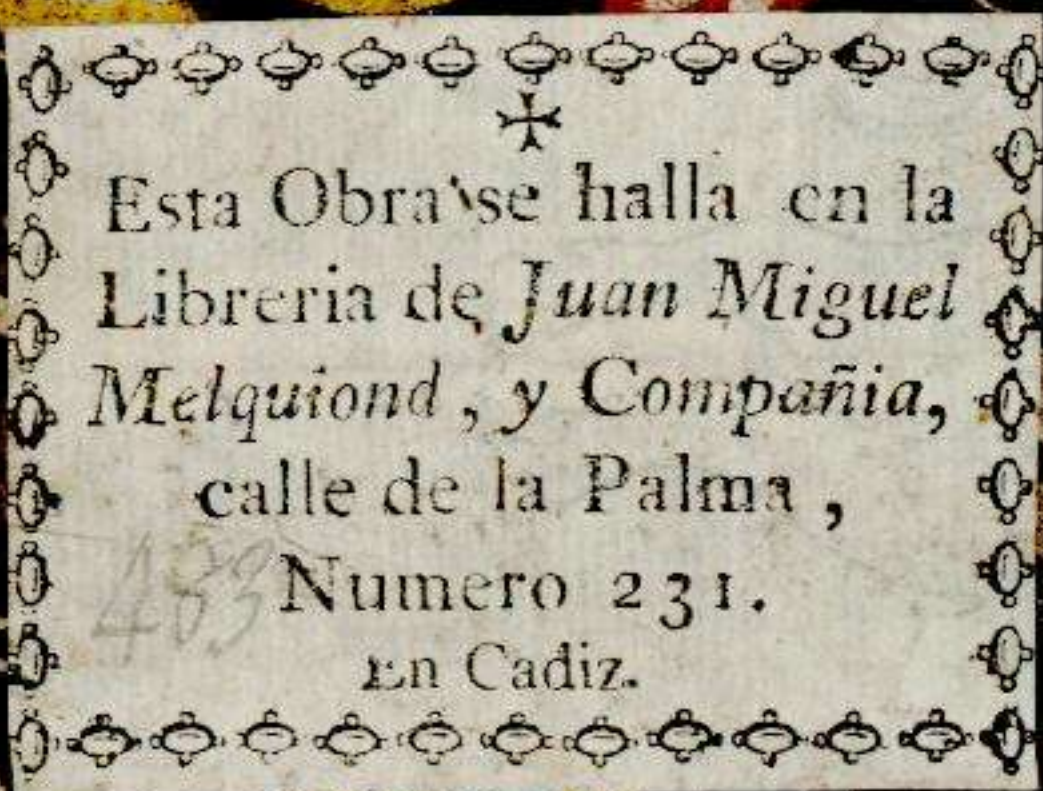 ✠
Esta Obra se halla en la
Libreria de Juan Miguel
Melquiond, y Compañia,
calle de la Palma,
Numero 231.
En Cadiz.
483